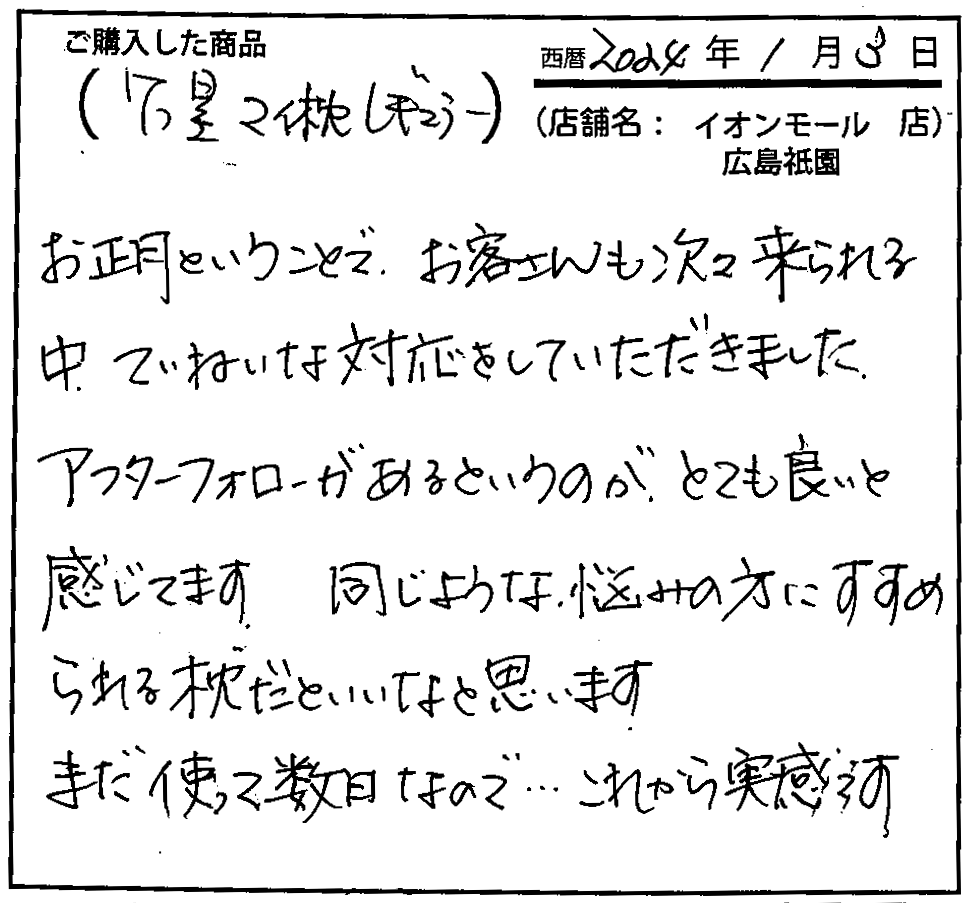 ご購入した商品
西暦 2024 年 1 月 3 日
マイ枕
(店舗名： イオンモール 店)
広島祇園
お正月ということで、お客さんも次々来られる
中、ていねいな対応をしていただきました。
アフターフォローがあるというのが、とても良いと
感じてます。 同じような、悩みの方にすすめ
られる枕だといいなと思います
まだ使って数日なので…これから実感です